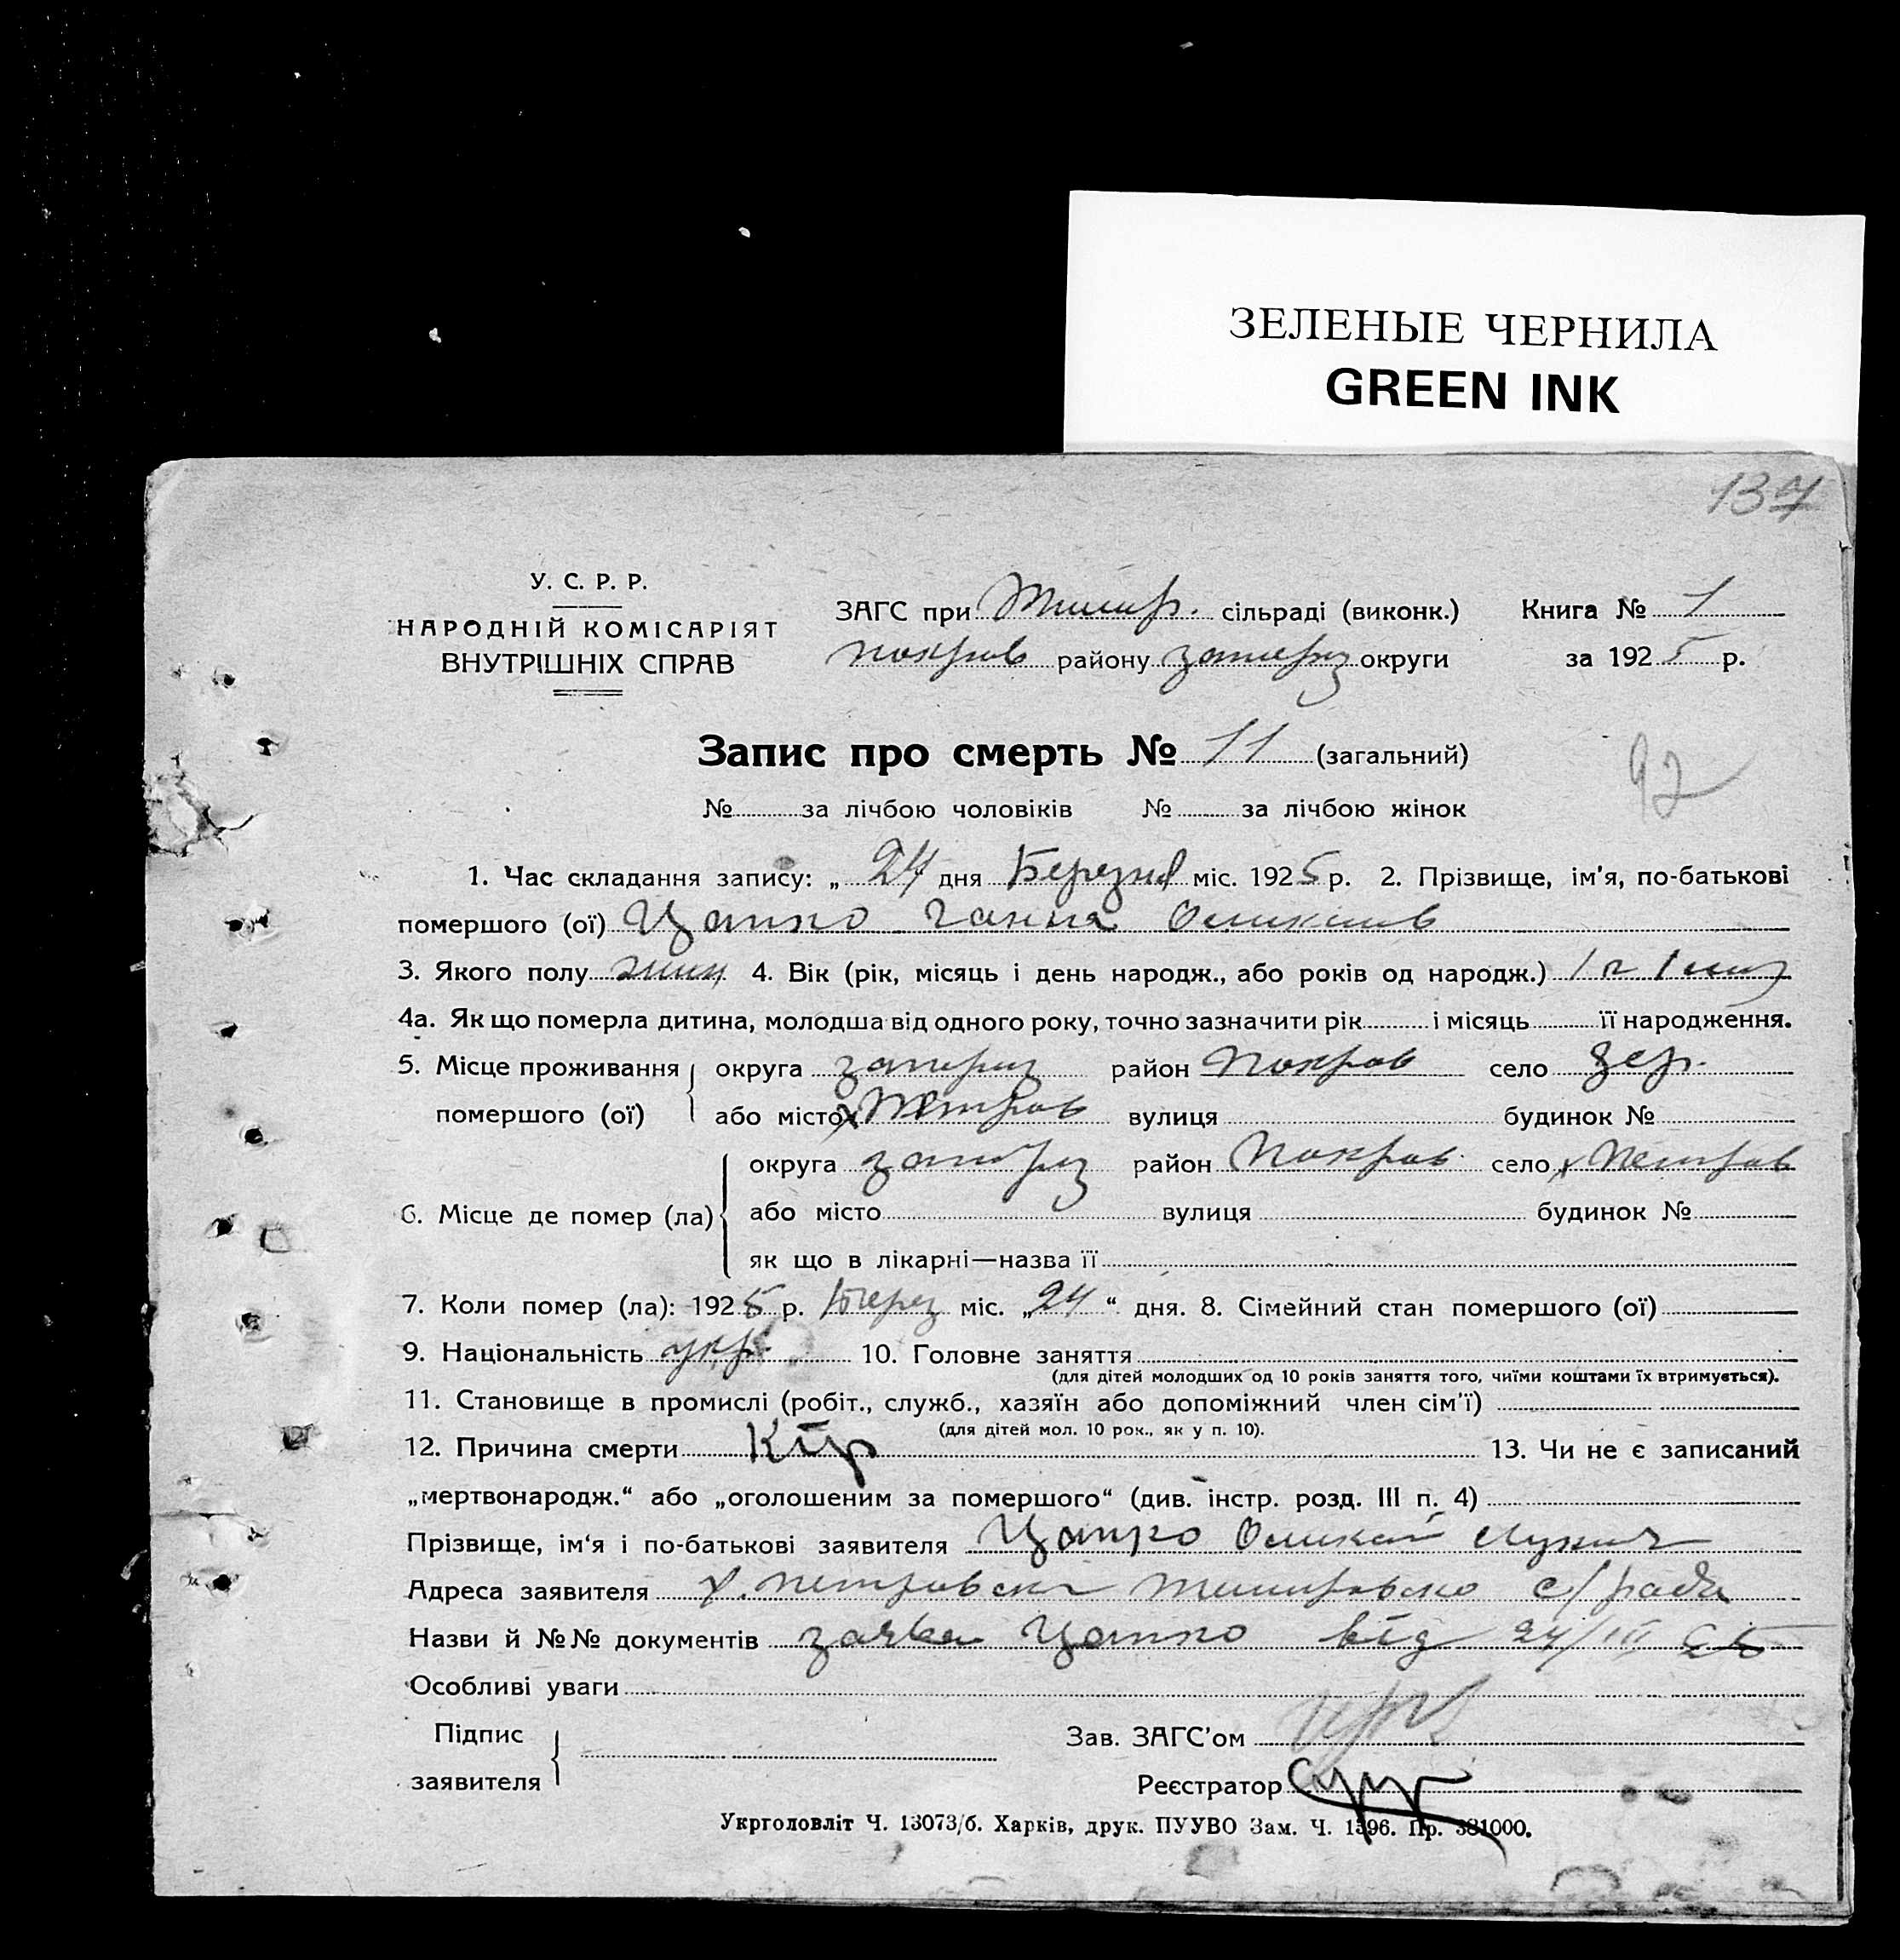 ЗЕЛЕНЫЕ ЧЕРНИЛА
GREEN INK
137
У. С. Р. Р.
НАРОДНІЙ КОМІСАРІЯТ
ВНУТРІШНІХ СПРАВ
ЗАГС при сільраді (виконк.)
покров району запоріз округи
Книга № 1
за 1925 р.
Запис про смерть № 11 (загальний)
92
№ за лічбою чоловіків № за лічбою жінок
1. Час складання запису: „ 24 дня Березня міс. 1925 р. 2. Прізвище, ім'я, по-батькові
помершого (ої) Цапко Ганна
3. Якого полу жин 4. Вік (рік, місяць і день народж., або років од народж.) 1 г 1 міс
4а. Як що померла дитина, молодша від одного року, точно зазначити рік і місяць її народження.
5. Місце проживання округа запоріз район Покров село
помершого (ої) або місто х Петров вулиця будинок №
округа запоріз район Покров село х Петров
6. Місце де помер (ла) або місто вулиця будинок №
як що в лікарні—назва її
7. Коли помер (ла): 1925 р. Берез міс. „24“ дня. 8. Сімейний стан помершого (ої)
9. Національність укр. 10. Головне заняття
(для дітей молодших од 10 років заняття того, чиїми коштами їх втримується).
11. Становище в промислі (робіт., служб., хазяїн або допоміжний член сім'ї)
(для дітей мол. 10 рок., як у п. 10).
12. Причина смерти Кір 13. Чи не є записаний
„мертвонародж.“ або „оголошеним за помершого“ (див. інстр. розд. III п. 4)
Прізвище, ім'я і по-батькові заявителя Цапко
Адреса заявителя х. Петровски с/рада
Назви й №№ документів заява Цапко від 24/III 25
Особливі уваги
Підпис
заявителя
Зав. ЗАГС'ом
Реєстратор
Укрголовліт Ч. 13073/б. Харків, друк. ПУУВО Зам. Ч. 1596. Пр. 381000.